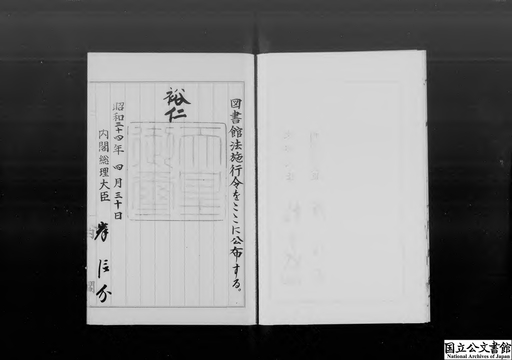 図書館法施行令をここに公布する。
裕仁
天皇御璽
昭和三十四年四月三十日
内閣総理大臣 岸信介
国立公文書館
National Archives of Japan